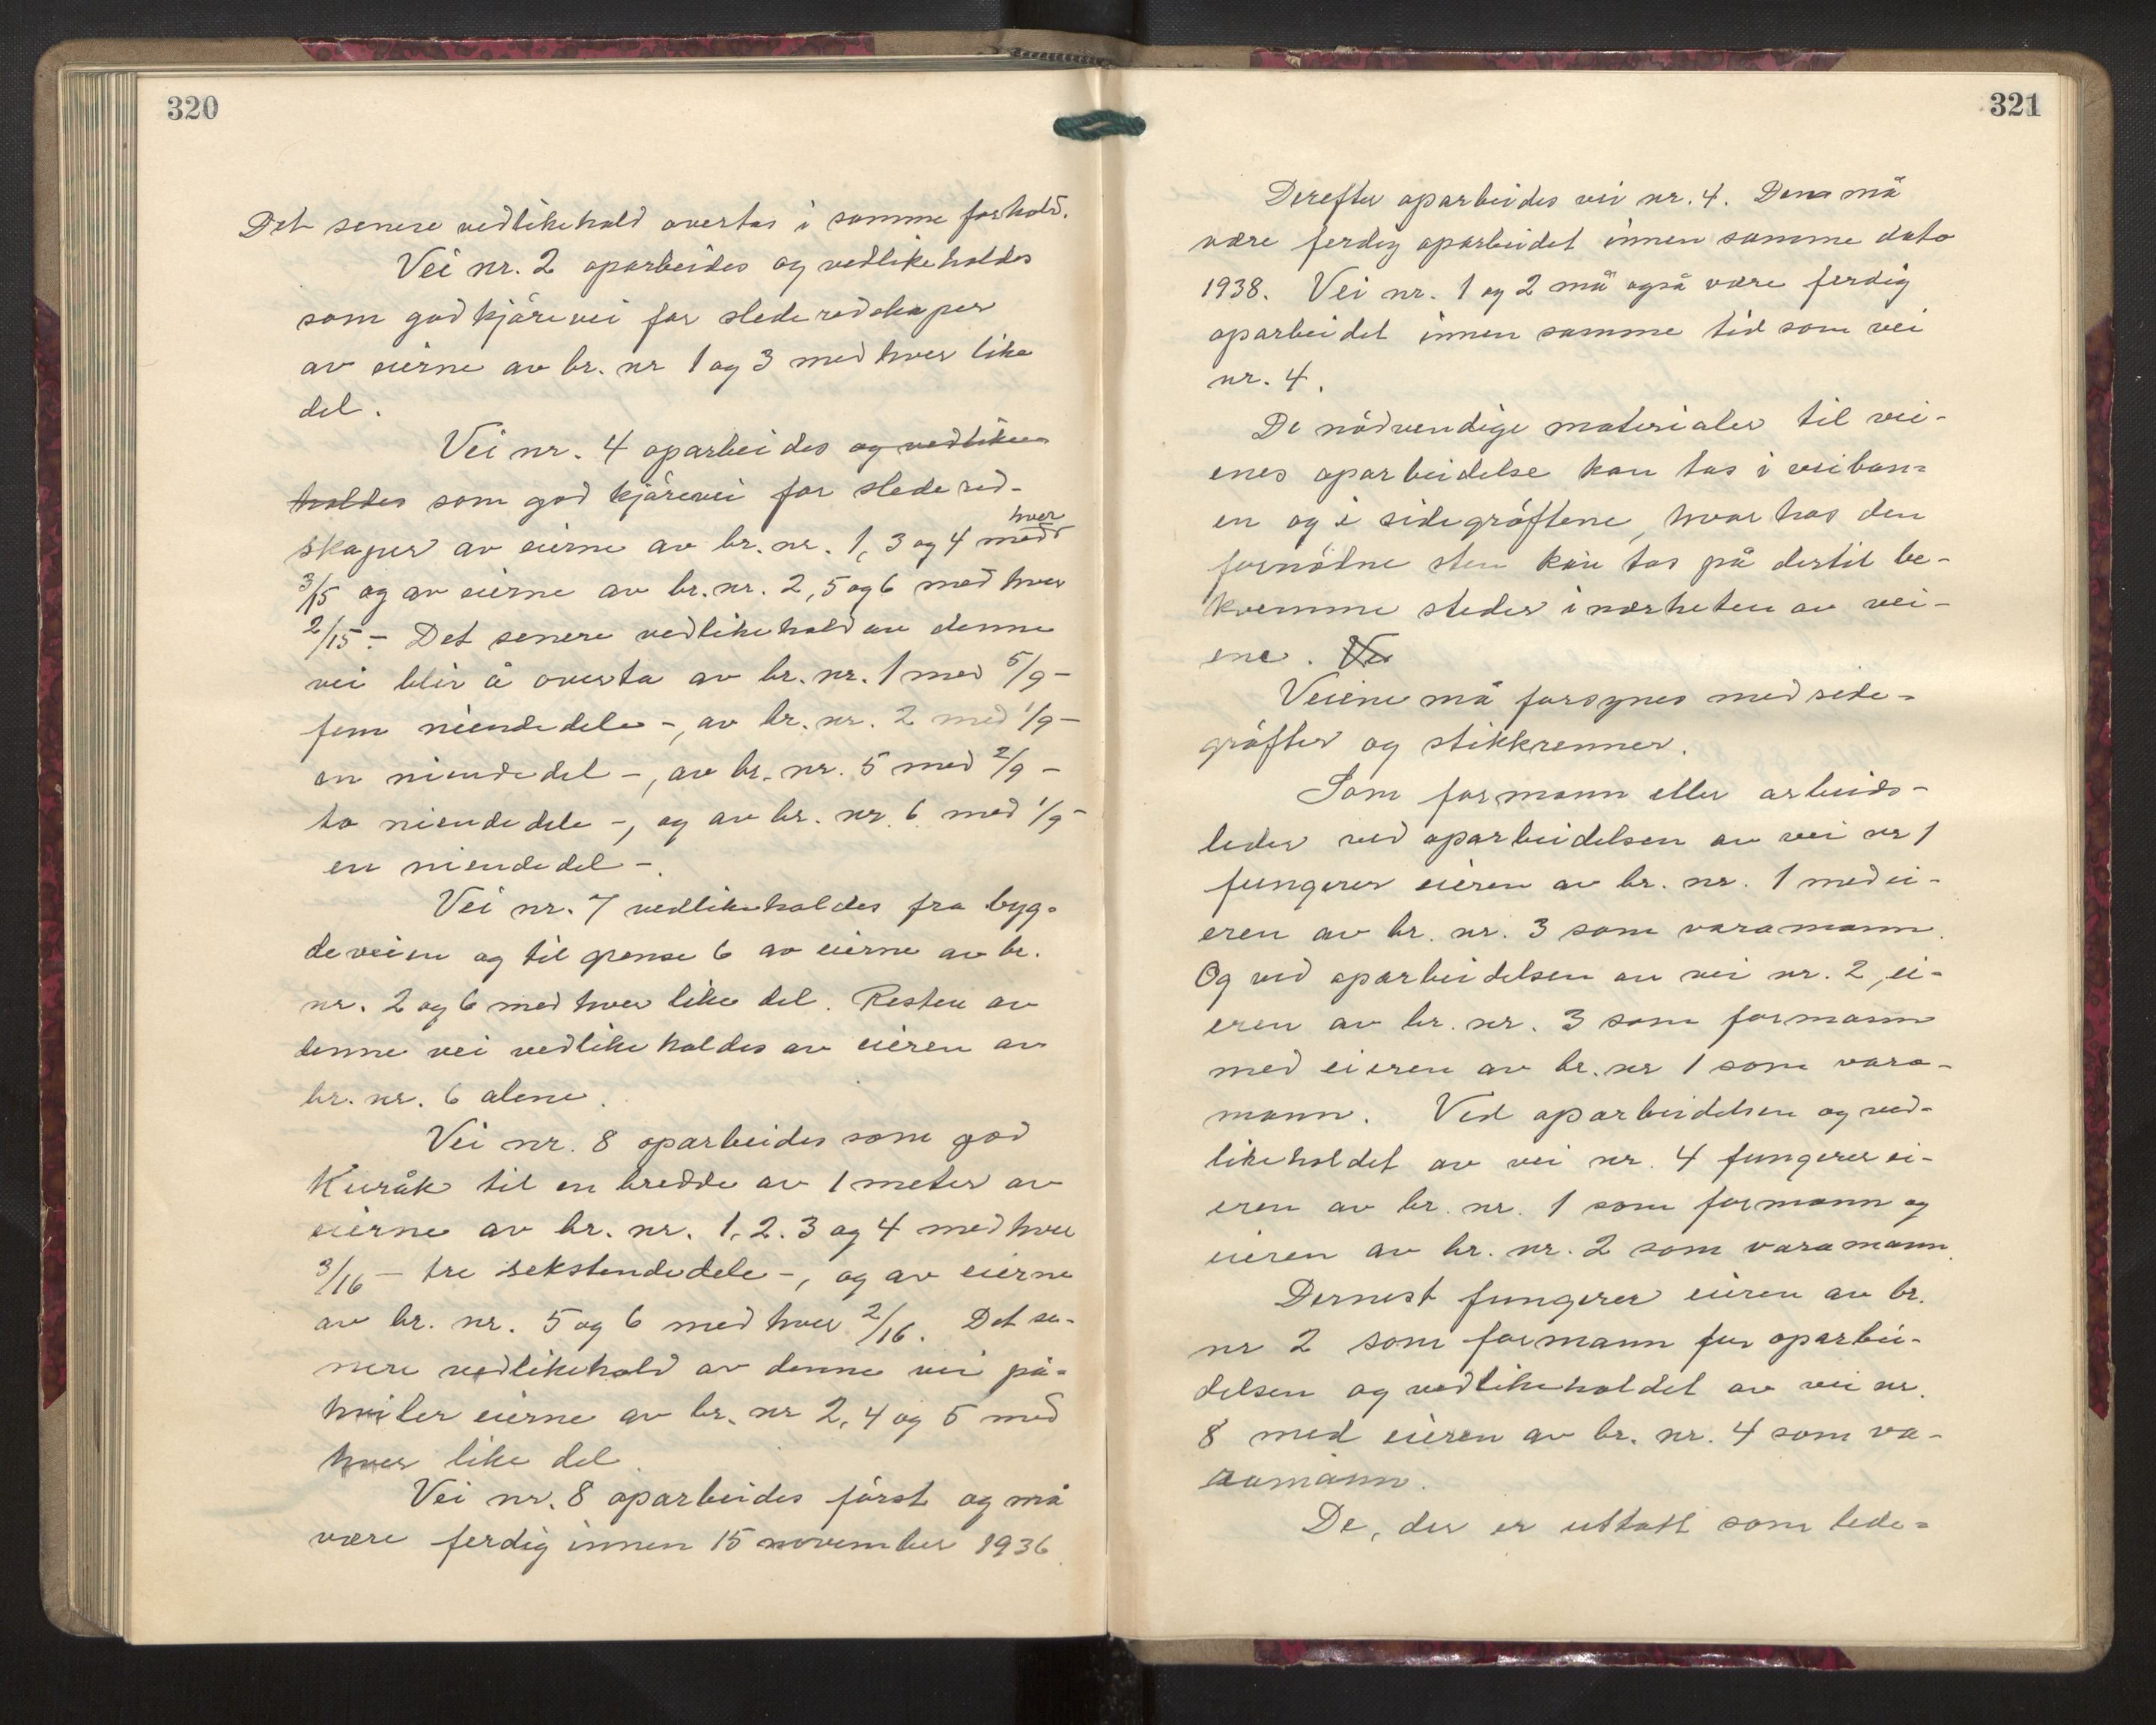 320
Det senere vedlikehold overtas i samme forhold.
Vei nr. 2 oparbeides og vedlikeholdes
som god kjörevei for slederedskaper
av eierne av br. nr 1 og 3 med hver like
del.
Vei nr. 4 oparbeides og vedlike
holdes som god kjörevei for sledered-
hver
skaper av eierne av br. nr. 1, 3 og 4 med
3/15 og av eierne av br. nr. 2, 5 og 6 med hver
2/15.- Det senere vedlikehold av denne
vei blir å overta av br. nr. 1 med 5/9 -
fem niendedele -, av br. nr. 2 med 1/9 -
en niendedel -, av br. nr. 5 med 2/9 -
to niendedele -, og av br. nr. 6 med 1/9 -
en niendedel -.
Vei nr. 7 vedlikeholdes fra byg-
deveien og til grense 6 av eierne av br.
nr. 2 og 6 med hver like del. Resten av
denne vei vedlikeholdes av eieren av
br. nr. 6 alene.
Vei nr. 8 oparbeides som god
Kuråk til en bredde av 1 meter av
eierne av br. nr. 1, 2. 3 og 4 med hver
3/16 - tre sekstendedele -, og av eierne
av br. nr. 5 og 6 med hver 2/16. Det se-
nere vedlikehold av denne vei på-
hviler eierne av br. nr 2, 4 og 5 med
hver like del.
Vei nr. 8 oparbeides först og må
være ferdig innen 15 november 1936.
321
Derefter oparbeides vei nr. 4. Den må
være ferdig oparbeidet innen samme dato
1938. Vei nr. 1 og 2 må også være ferdig
oparbeidet innen samme tid som vei
nr. 4.
De nödvendige materialer til vei-
enes oparbeidelse kan tas i veiban-
en og i sidegröftene, hvorhos den
fornödne sten kan tas på dertil be-
kvemme steder i nærheten av vei-
ene. Ve
Veiene må forsynes med side-
gröfter og stikkrenner.
Som formann eller arbeids-
leder ved oparbeidelsen av vei nr 1
fungerer eieren av br. nr. 1 med ei-
eren av br. nr. 3 som varamann.
Og ved oparbeidelsen av vei nr. 2, ei-
eren av br. nr. 3 som formann
med eieren av br. nr 1 som vara-
mann. Ved oparbeidelsen og ved-
likeholdet av vei nr. 4 fungerer ei-
eren av br. nr. 1 som formann og
eieren av br. nr. 2 som varamann.
Dernest fungerer eieren av br.
nr 2 som formann for oparbei-
delsen og vedlikeholdet av vei nr.
8 med eieren av br. nr. 4 som va-
ramann.
De, der er uttatt som lede-